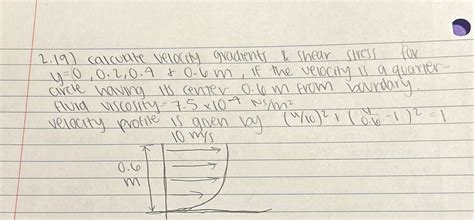 2.19) calcuate velocity gradients & shear stress for
y=0, 0.2, 0.4 & 0.6 m, if the velocity is a quarter-
circle having its center 0.6 m from boundary.
Fluid viscosity = 7.5 x10^-4 Ns/m²
velocity profile is given by (u/10)² + (y/0.6 - 1)² = 1
10 m/s
0.6
m